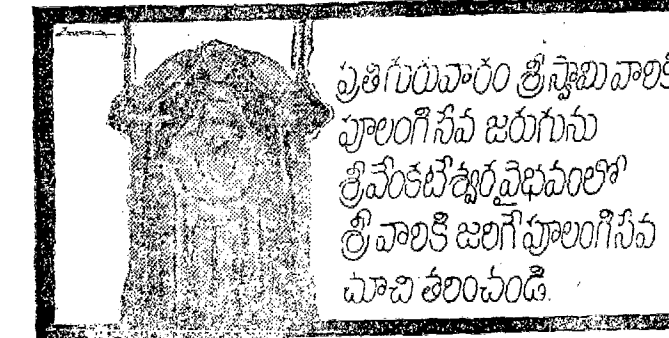 ప్రతి గురువారం శ్రీస్వామి వారికి
పూలంగి సేవ జరుగును
శ్రీవేంకటేశ్వర వైభవంలో
శ్రీ వారికి జరిగే పూలంగిసేవ
చూచి తరించండి.